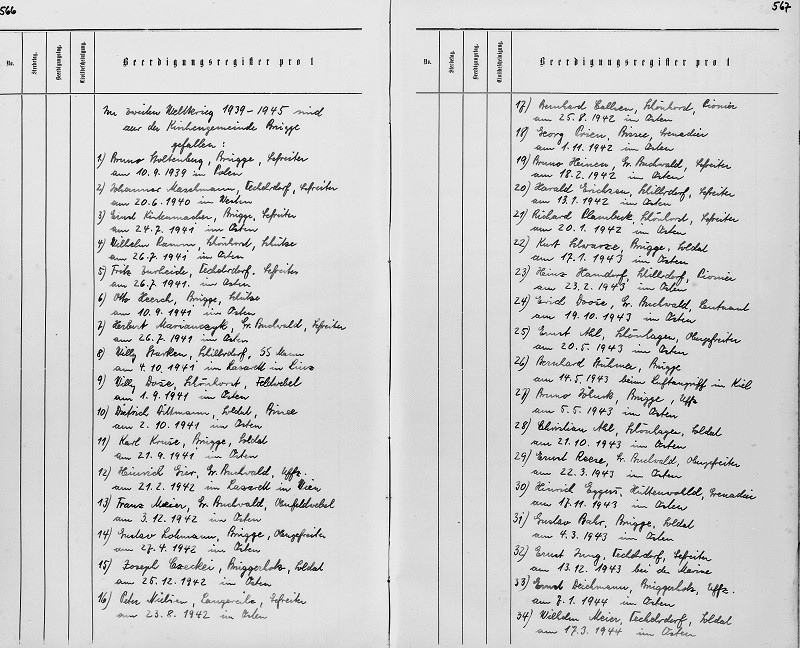 566
No.
Sterbetag.
Beerdigungstag.
Beerdigungsregister pro 1
Im zweiten Weltkrieg 1939-1945 sind
aus der Kirchengemeinde Brügge
gefallen:
1) Bruno Stoltenberg, Brügge, Gefreiter
am 10.9.1939 in Polen
2) Johannes Maschmann, Techelsdorf, Gefreiter
am 20.6.1940 im Westen
3) Ernst Brügge, Gefreiter
am 24.7.1941 im Osten
4) Wilhelm Ramm, Schönhorst, Schütze
am 26.7.1941 im Osten
5) Fritz Techelsdorf, Gefreiter
am 26.7.1941 im Osten
6) Otto Brügge, Schütze
am 10.9.1941 im Osten
7) Herbert Gr. Buchwald, Gefreiter
am 26.7.1941 im Osten
8) Willy Schillsdorf, SS Mann
am 4.10.1941 im Lazarett in
9) Willy Dose, Schönhorst, Feldwebel
am 1.9.1941 im Osten
10) Dietrich Wittmann, Soldat, Bissee
am 2.10.1941 im Osten
11) Karl Kruse, Brügge, Soldat
am 21.9.1941 im Osten
12) Heinrich Gr. Buchwald, Uffz.
am 21.2.1942 im Lazarett in Wien
13) Franz Meier, Gr. Buchwald, Oberfeldwebel
am 3.12.1942 im Osten
14) Gustav Lohmann, Brügge, Obergefreiter
am 27.4.1942 im Osten
15) Joseph Brüggerholz, Soldat
am 25.12.1942 im Osten
16) Peter Nielsen, Gefreiter
am 23.8.1942 im Osten
567
No.
Sterbetag.
Beerdigungstag.
Beerdigungsregister pro 1
17) Bernhard Schönhorst, Pionier
am 25.8.1942 im Osten
18) Georg Prien, Bissee, Grenadier
am 1.11.1942 im Osten
19) Bruno Gr. Buchwald, Gefreiter
am 18.2.1942 im Osten
20) Harald Erichsen, Schillsdorf, Gefreiter
am 13.1.1942 im Osten
21) Richard Plambeck, Schönhorst, Gefreiter
am 20.1.1942 im Osten
22) Kurt Schwarze, Brügge, Soldat
am 17.1.1943 im Osten
23) Heinz Hamdorf, Schillsdorf, Pionier
am 23.2.1943 im Osten
24) Erich Dose, Gr. Buchwald, Leutnant
am 19.10.1943 im Osten
25) Ernst Ahl, Schönhagen, Obergefreiter
am 20.5.1943 im Osten
26) Bernhard Brügge
am 14.5.1943 beim Luftangriff in Kiel
27) Bruno Brügge, Uffz.
am 5.5.1943 im Osten
28) Christian Ahl, Schönhagen, Soldat
am 21.10.1943 im Osten
29) Ernst Reese, Gr. Buchwald, Obergefreiter
am 22.3.1943 im Osten
30) Hinrich Eggers, Hüttenwohld, Grenadier
am 17.11.1943 im Osten
31) Gustav Bahr, Brügge, Soldat
am 4.3.1943 im Osten
32) Ernst Jung, Techelsdorf, Gefreiter
am 13.12.1943 bei der Marine
33) Ernst Deichmann, Brüggerholz, Uffz.
am 7.1.1944 im Osten
34) Wilhelm Meier, Techelsdorf, Soldat
am 17.3.1944 im Osten